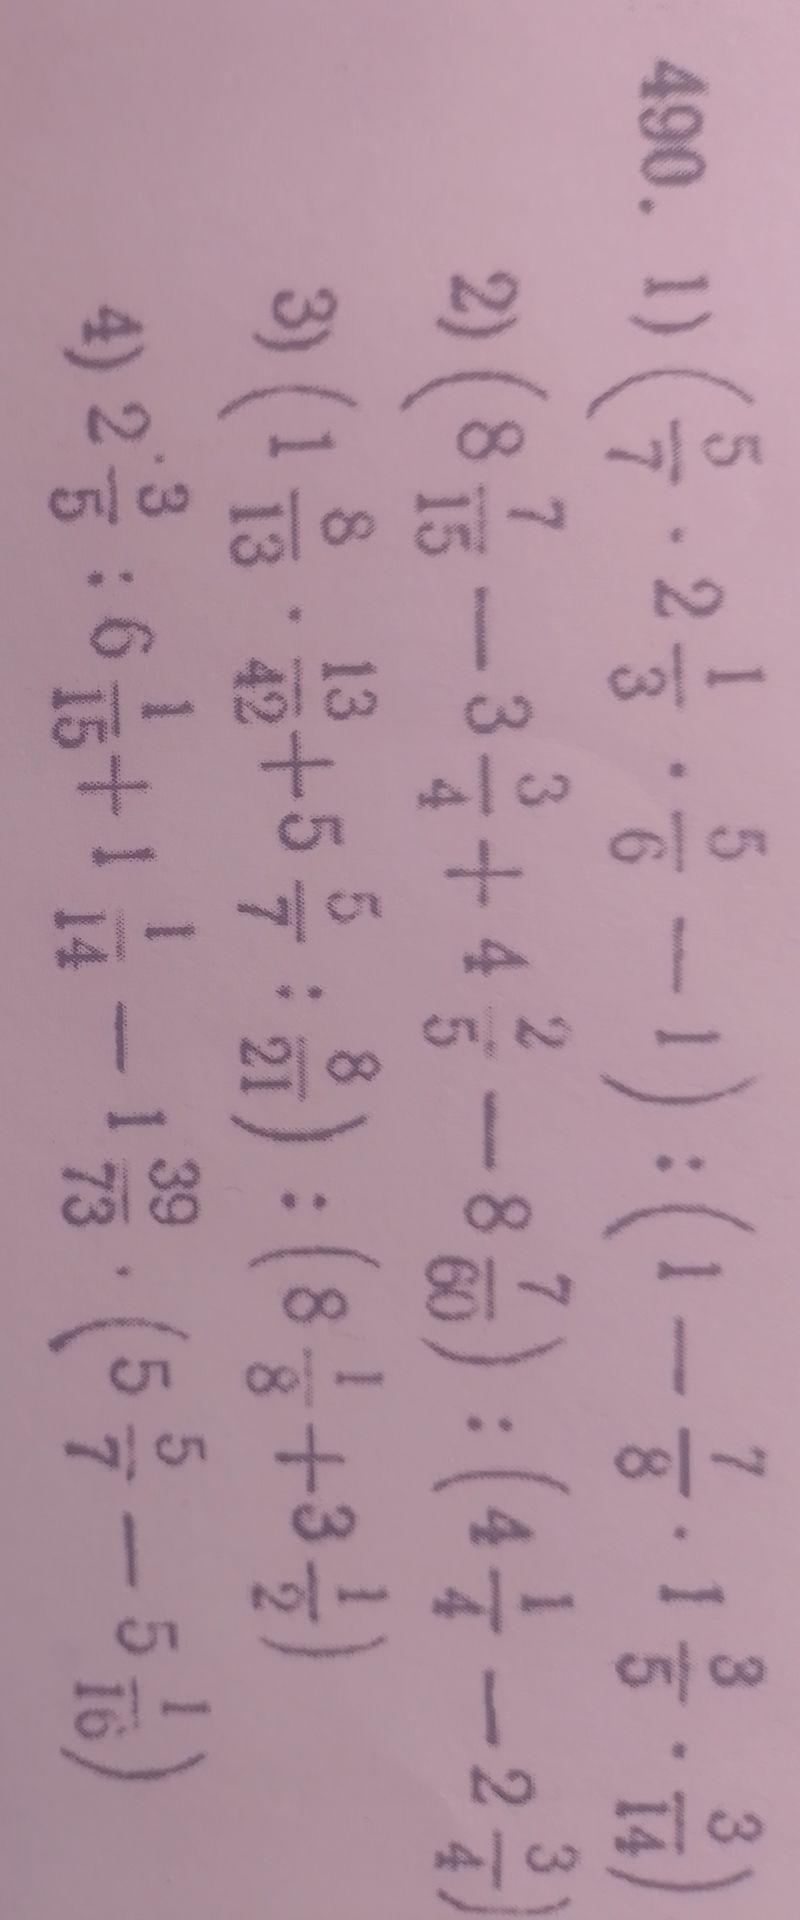 490. 1) (5/7 · 2 1/3 · 5/6 — 1) : (1 — 7/8 · 1 3/5 · 3/14)
2) (8 7/15 — 3 3/4 + 4 2/5 — 8 7/60) : (4 1/4 — 2 3/4)
3) (1 8/13 · 13/42 + 5 5/7 : 8/21) : (8 1/8 + 3 1/2)
4) 2 3/5 : 6 1/15 + 1 1/14 — 1 39/73 · (5 5/7 — 5 1/16)